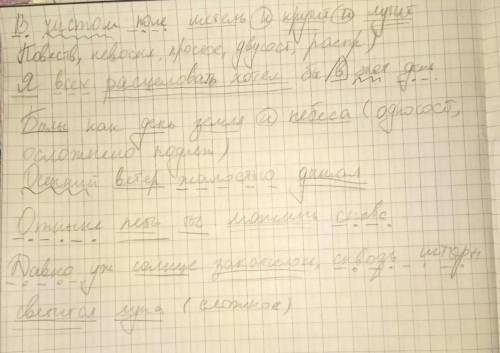 В чистом поле метель и крутит и мутит
Повеств, невоскл, простое, двусост, распр)
Я всех расцеловать хотел бы в этот день
Белы как день земля и небеса (односост,
осложнено подлеж)
Осенний ветер жалостно дышал
Отныне петь ты можешь снова
Давно уж солнце закатилось, сквозь шторы
светится луна (сложное)